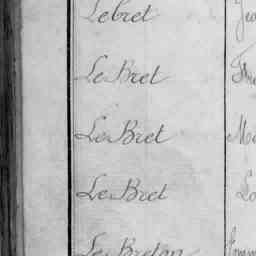 Lebret
Le Bret
Le Bret
Le Bret
Le Breton